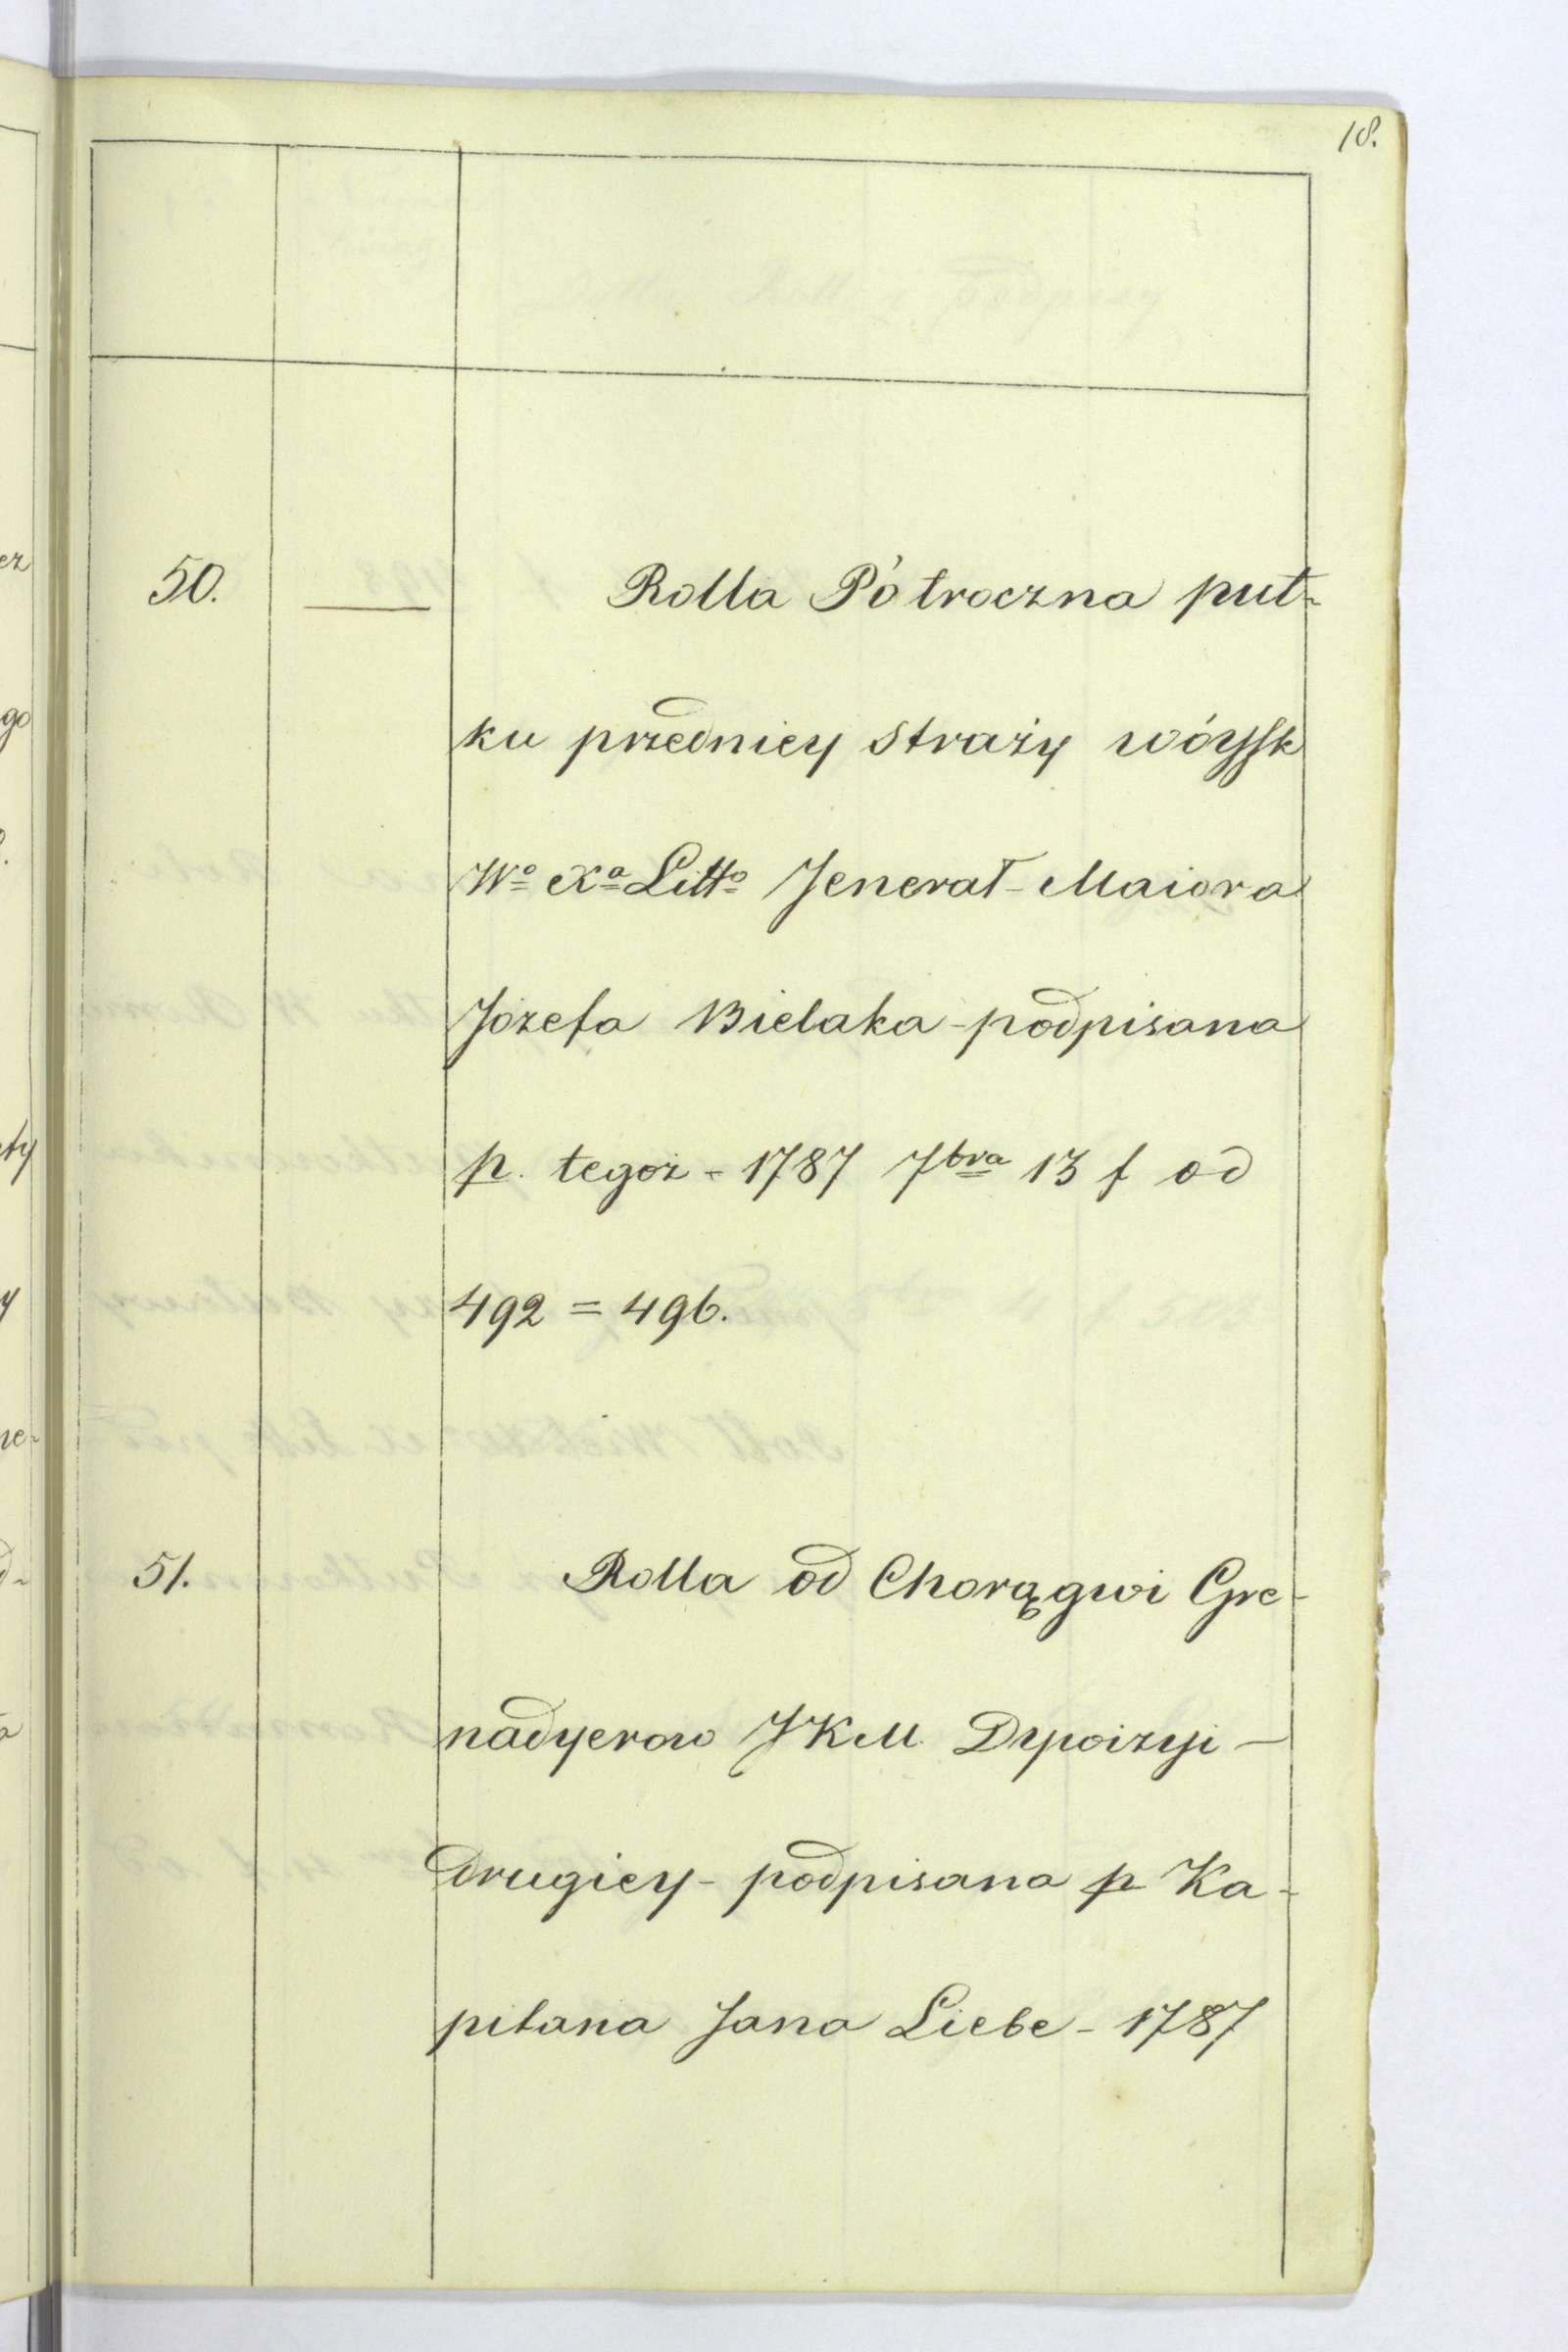 18.
50. — Rolla Półroczna puł-
ku przedniey straży wóysk
Wº Xª Littº Jenerał-Maiora
Józefa Bielaka - podpisana
p. tegoż - 1787 7bra 13 f od
492 = 496.
51. Rolla od Chorągwi Gre-
nadyerow JKM. Dywizyi -
drugiey - podpisana p Ka-
pitana Jana Liebe - 1787